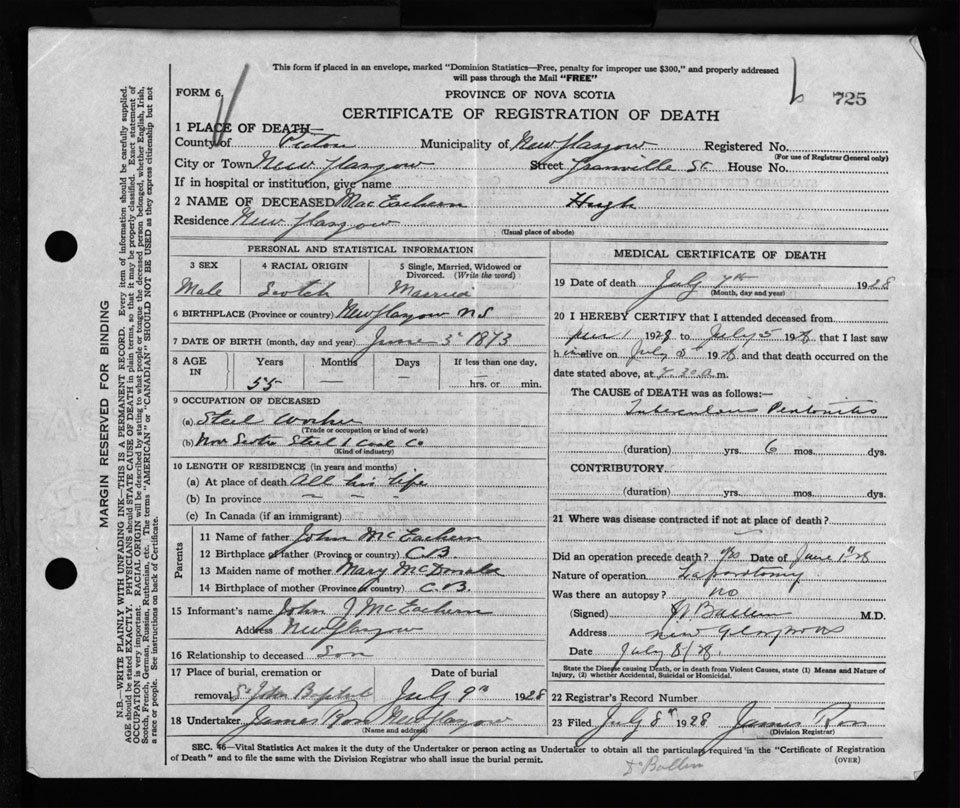 This form if placed in an envelope, marked "Dominion Statistics—Free, penalty for improper use $300," and properly addressed
will pass through the Mail "FREE"
FORM 6.
PROVINCE OF NOVA SCOTIA
725
CERTIFICATE OF REGISTRATION OF DEATH
1 PLACE OF DEATH—
County of Pictou Municipality of New Glasgow Registered No.
(For use of Registrar General only)
City or Town New Glasgow Street Granville St. House No.
If in hospital or institution, give name
2 NAME OF DECEASED MacEachern Hugh
Residence New Glasgow
(Usual place of abode)
PERSONAL AND STATISTICAL INFORMATION
3 SEX 4 RACIAL ORIGIN 5 Single, Married, Widowed or
Divorced. (Write the word)
Male Scotch Married
6 BIRTHPLACE (Province or country) New Glasgow N S
7 DATE OF BIRTH (month, day and year) June 5 1873
8 AGE IN Years Months Days If less than one day,
55 — hrs. or min.
9 OCCUPATION OF DECEASED
(a) Steel Worker
(Trade or occupation or kind of work)
(b) Nova Scotia Steel & Coal Co
(Kind of industry)
10 LENGTH OF RESIDENCE (in years and months)
(a) At place of death All his life
(b) In province — —
(c) In Canada (if an immigrant)
Parents
11 Name of father John McEachern
12 Birthplace of father (Province or country) C.B
13 Maiden name of mother Mary McDonald
14 Birthplace of mother (Province or country) C.B.
15 Informant's name John J McEachern
Address New Glasgow
16 Relationship to deceased Son
17 Place of burial, cremation or Date of burial
removal St John Baptist July 9th 1928
18 Undertaker James Ross New Glasgow
(Name and address)
MEDICAL CERTIFICATE OF DEATH
19 Date of death July 7th 1928
(Month, day and year)
20 I HEREBY CERTIFY that I attended deceased from
June 1 1928 to July 5 1928, that I last saw
him alive on July 1928, and that death occurred on
date stated above, at 7.30 a.m.
The CAUSE OF DEATH was as follows:—
Tuberculous Peritonitis
(duration) yrs. 6 mos. dys.
CONTRIBUTORY
(duration) yrs. mos. dys.
21 Where was disease contracted if not at place of death?
Did an operation precede death? yes Date of June 28
Nature of operation Laparotomy
Was there an autopsy? no
(Signed) M.D.
Address New Glasgow
Date July 8/28.
State the Disease causing Death, or in death from Violent Causes, state (1) Means and Nature of
Injury, (2) whether Accidental, Suicidal or Homicidal.
22 Registrar's Record Number
23 Filed July 8th 1928 James Ross
(Division Registrar)
SEC. 46—Vital Statistics Act makes it the duty of the Undertaker or person acting as Undertaker to obtain all the particulars required in the "Certificate of Registration
of Death" and to file the same with the Division Registrar who shall issue the burial permit.
(OVER)
MARGIN RESERVED FOR BINDING
N.B.—WRITE PLAINLY WITH UNFADING INK—THIS IS A PERMANENT RECORD. Every item of information should be carefully supplied.
AGE should be stated EXACTLY. PHYSICIANS should STATE CAUSE OF DEATH in plain terms, so that it may be properly classified. Exact statement of
OCCUPATION is very important. RACIAL ORIGIN will be described by stating to what people or tongue the deceased person belonged, whether English, Irish,
Scotch, French, German, Russian, Ruthenian, etc. The terms "AMERICAN" or "CANADIAN" SHOULD NOT BE USED as they express citizenship but not
a race or people. See instructions on back of Certificate.